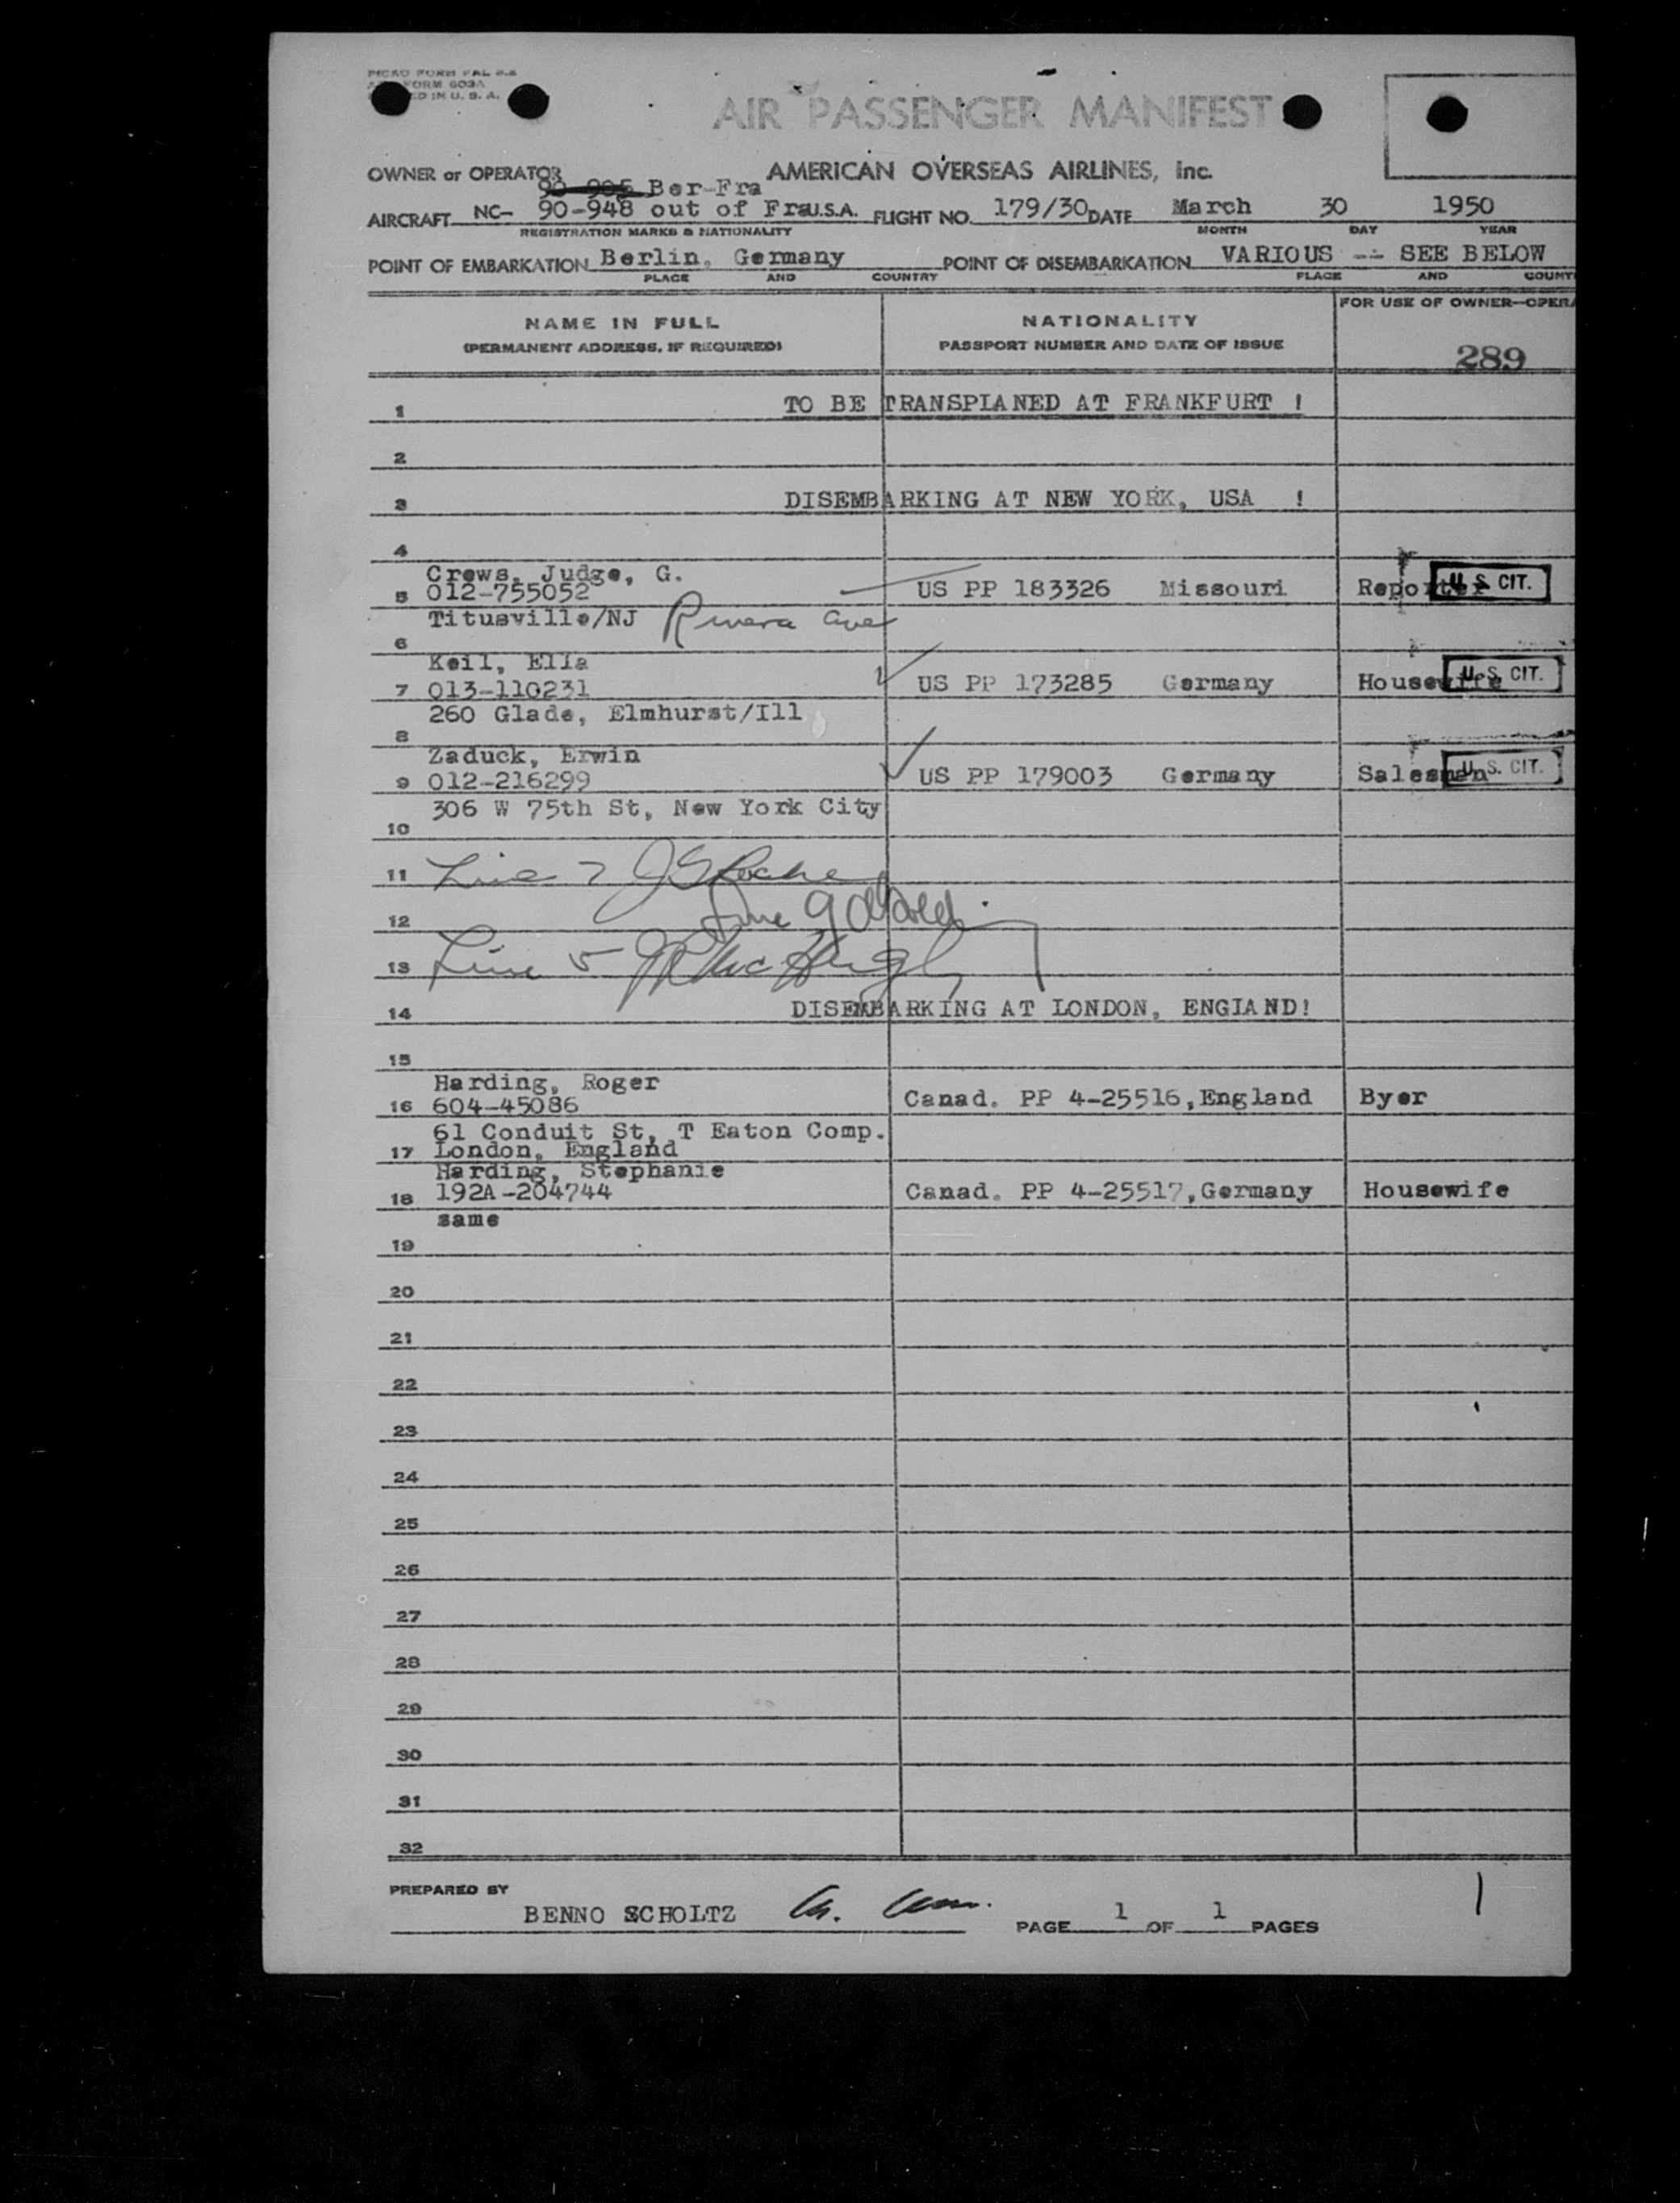 AIR PASSENGER MANIFEST
OWNER or OPERATOR AMERICAN OVERSEAS AIRLINES, Inc.
Ber-Fra
AIRCRAFT NC- 90-948 out of Fra U.S.A. FLIGHT NO. 179/30 DATE March 30 1950
REGISTRATION MARKS & NATIONALITY MONTH DAY YEAR
POINT OF EMBARKATION Berlin, Germany POINT OF DISEMBARKATION VARIOUS -- SEE BELOW
PLACE AND COUNTRY PLACE AND COUNT
NAME IN FULL NATIONALITY FOR USE OF OWNER-OPERA
(PERMANENT ADDRESS, IF REQUIRED) PASSPORT NUMBER AND DATE OF ISSUE
289
1 TO BE TRANSPLANED AT FRANKFURT !
2
3 DISEMBARKING AT NEW YORK, USA !
4
Crews, Judge, G.
5 012-755052 US PP 183326 Missouri Reporter U.S. CIT.
Titusville/NJ Rivera Ave
6
Keil, Ella
7 013-110231 US PP 173285 Germany Housewife U.S. CIT.
260 Glade, Elmhurst/Ill
8
Zaduck, Erwin
9 012-216299 US PP 179003 Germany Salesman U.S. CIT.
306 W 75th St, New York City
10
11 Line 7
12 Line 9
13 Line 5
14 DISEMBARKING AT LONDON, ENGLAND!
15
Harding, Roger
16 604-45086 Canad. PP 4-25516, England Byer
61 Conduit St, T Eaton Comp.
17 London, England
Harding, Stephanie
18 192A-204744 Canad. PP 4-25517, Germany Housewife
same
19
20
21
22
23
24
25
26
27
28
29
30
31
32
PREPARED BY
BENNO SCHOLTZ
PAGE 1 OF 1 PAGES